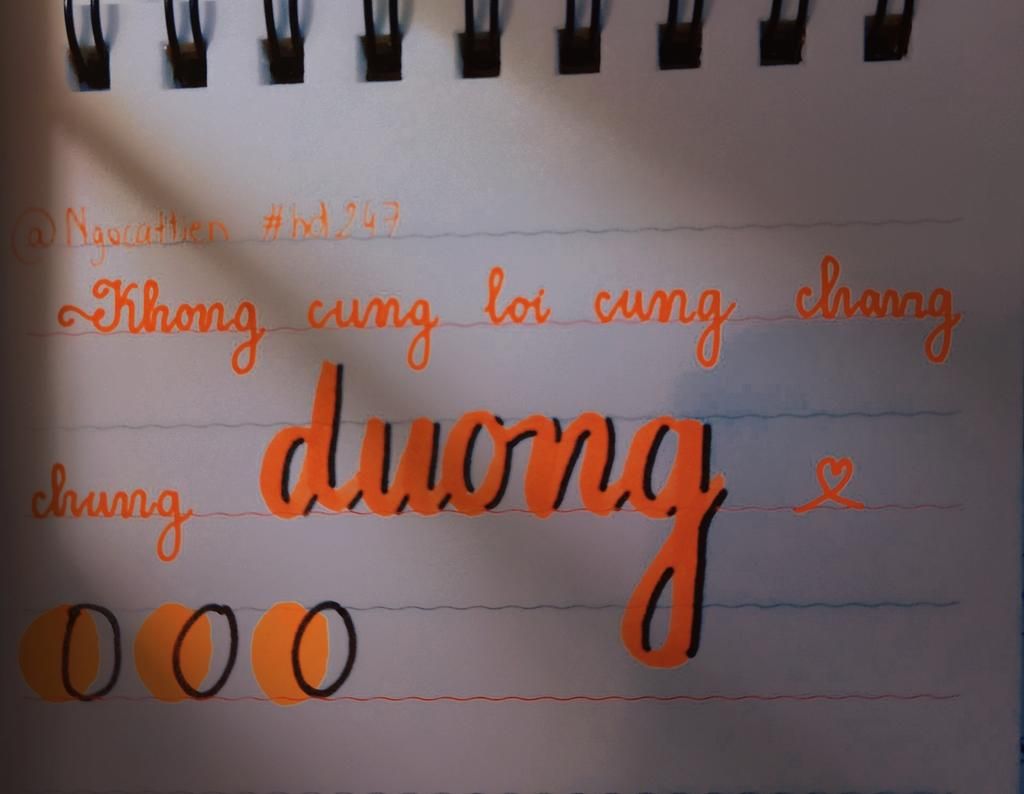 @Ngocattien #hd247
~Khong cung loi cung chang
chung duong